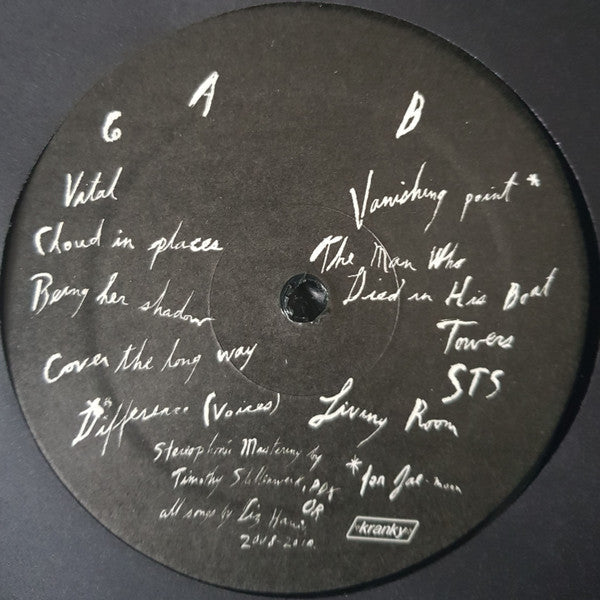 A
6
Vital
Cloud in places
Being her shadow
Cover the long way
*Difference (Voices)
B
Vanishing point *
The Man Who
Died in His Boat
Towers
STS
Living Room
Stereophonic Mastering by
Timothy Stollenwerk, PDX
OR
all songs by Liz Harris,
2008-2010
*for Jae-
kranky